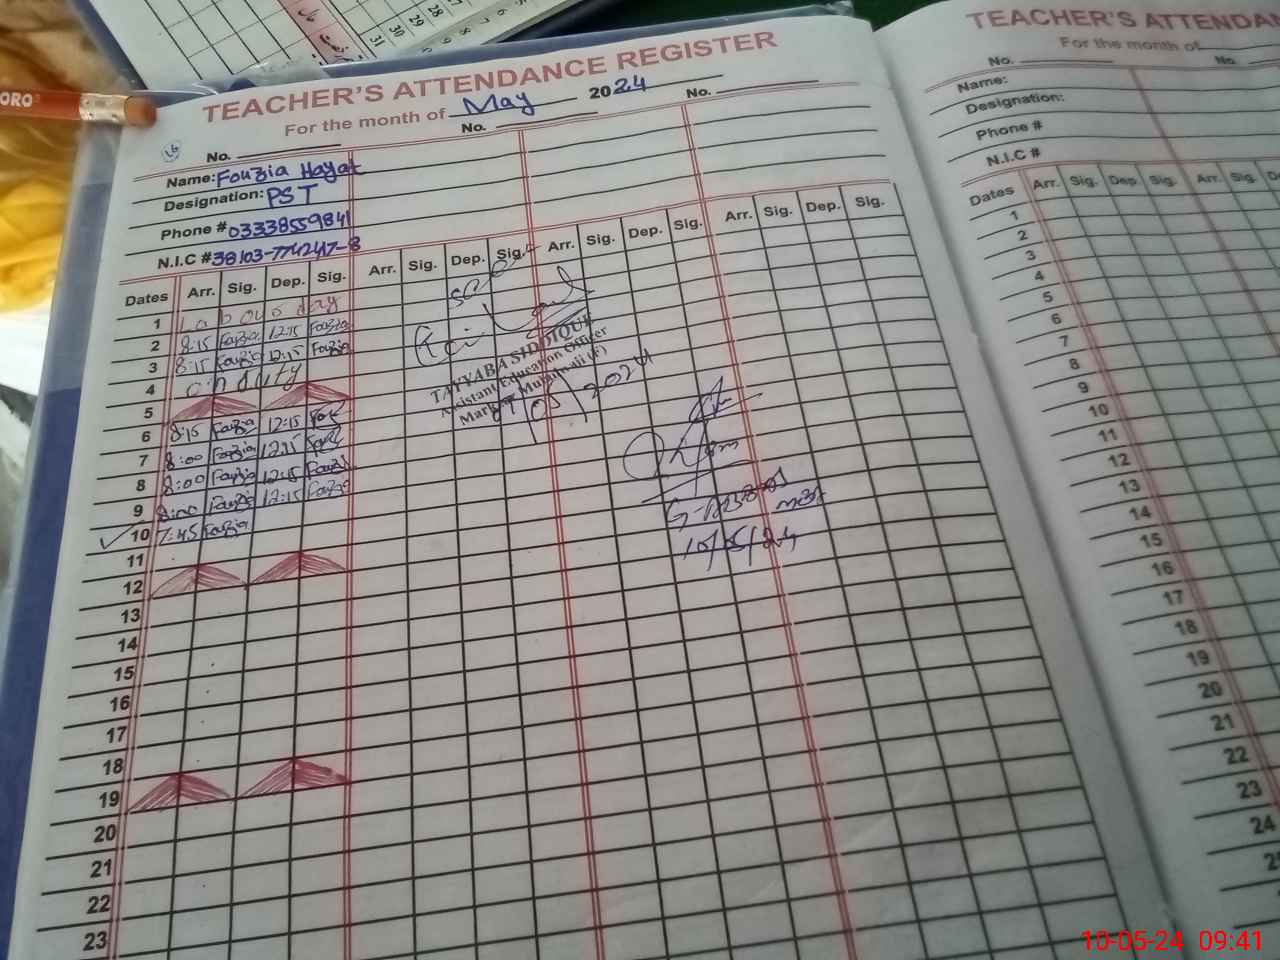 ORO
TEACHER'S ATTENDANCE REGISTER
For the month of May 2024
No. No. No.
Name: Fouzia Hayat
Designation: PST
Phone # 03338559841
N.I.C # 38103-7742417-8
Dates Arr. Sig. Dep. Sig. Arr. Sig. Dep. Sig. Arr. Sig. Dep. Sig. Arr. Sig. Dep. Sig.
1 Labour's day
2 8:15 Fouzia 12:15 Fouzia
3 8:15 Fouzia 12:15 Fouzia
4 on duty
5
6 8:15 Fouzia 12:15
7 8:00 Fouzia 12:15
8 8:00 Fouzia 12:15 Fouzia
9 8:00 Fouzia 12:15 Fouzia
10 7:45 Fouzia
11
12
13
14
15
16
17
18
19
20
21
22
23
TAYYABA SIDDIQUE
Assistant Education Officer
10/05/24
TEACHER'S ATTENDAN
For the month of
No. No.
Name:
Designation:
Phone #
N.I.C #
Dates Arr. Sig. Dep. Sig. Arr. Sig.
1
2
3
4
5
6
7
8
9
10
11
12
13
14
15
16
17
18
19
20
21
22
23
24
28
29
30
31
10-05-24 09:41